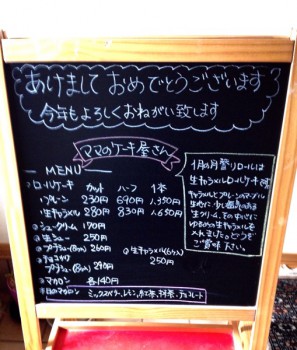 あけまして おめでとうございます
今年もよろしくおねがい致します
ママのケーキ屋さん
MENU
ロールケーキ カット ハーフ 1本
プレーン 230円 690円 1,350円
生キャラメル 280円 830円 1,650円
シュークリーム 170円
生シュー 250円
プラリュー(8cm) 260円
生キャラメル(6ケ入)
250円
チョコサブ
プラリュー(8cm) 290円
マカロン 各140円
マカロン ミックスベリー、レモン、紅茶、抹茶、チョコレート
1月の月替りロールは
生キャラメルロールケーキです
キャラメルとプレーンのマーブル
生地に少し塩気のある
生クリーム、そのまわりに
ゆるめの生キャラメルを
入れました。どうぞ
ご賞味下さい。